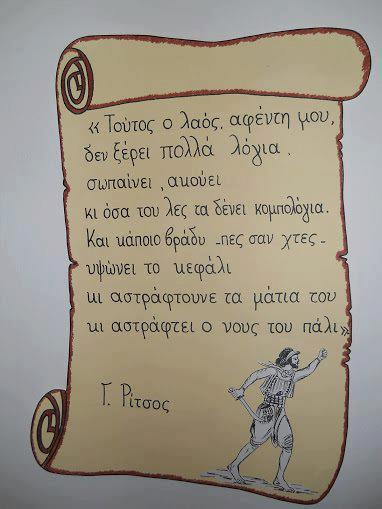 « Τούτος ο λαός, αφέντη μου,
δεν ξέρει πολλά λόγια,
σωπαίνει, ακούει
κι όσα του λες τα δένει κομπολόγια.
Και κάποιο βράδυ -πες σαν χτες-
υψώνει το κεφάλι
κι αστράφτουνε τα μάτια του
κι αστράφτει ο νους του πάλι»
Γ. Ρίτσος